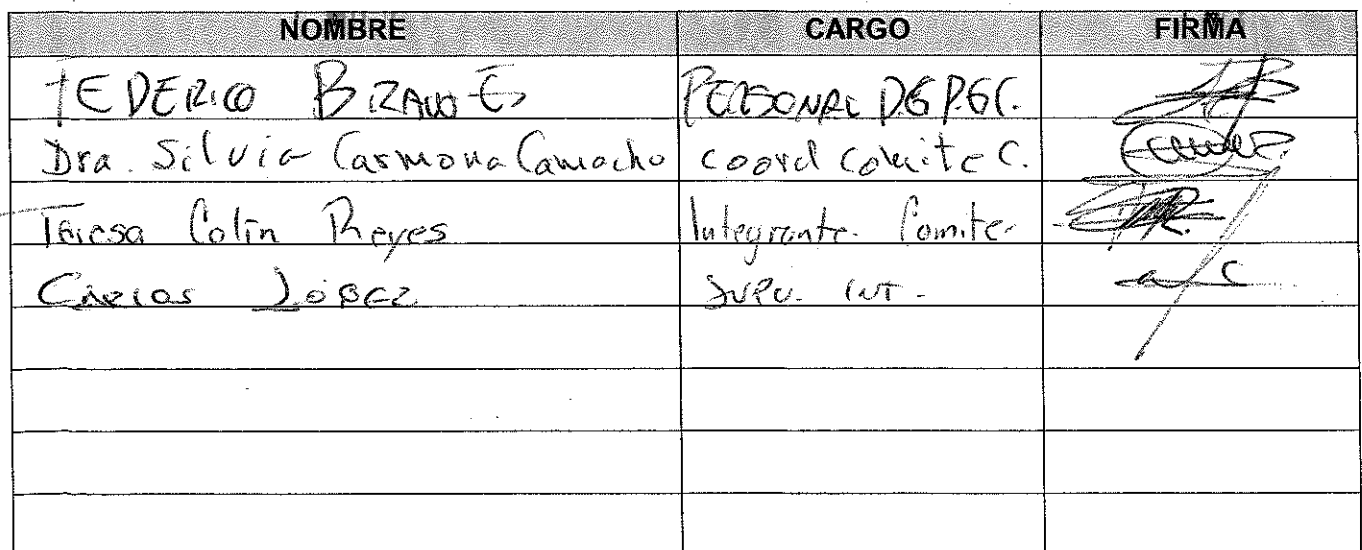 NOMBRE CARGO FIRMA
FEDERICO BRAVO E. PERSONAL DGPGC.
Dra. Silvia Carmona Camacho coord comite C.
Teresa Colín Reyes Integrante Comite
Carlos López SUPV. INT.